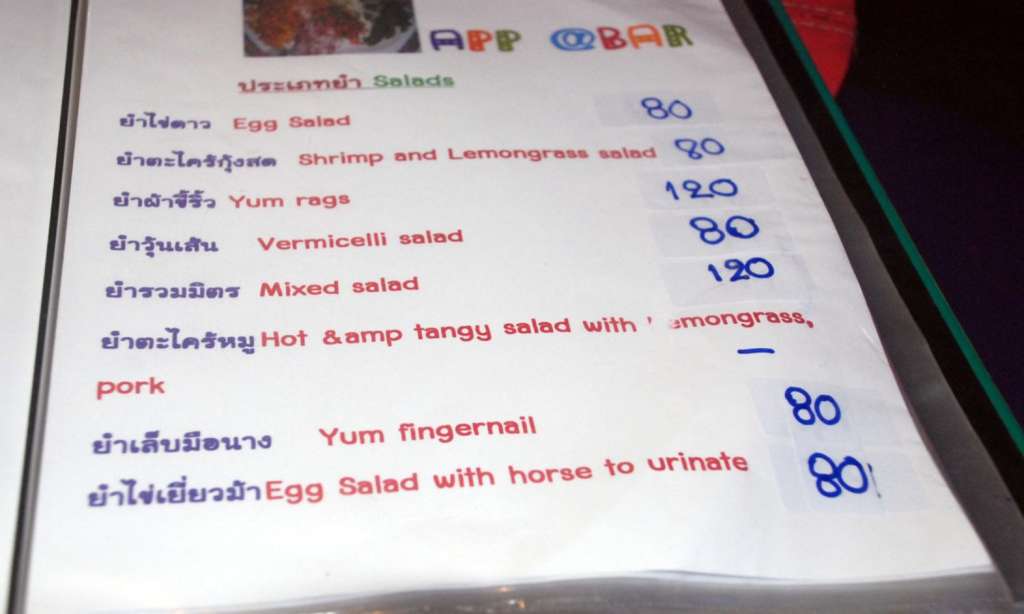 APP @BAR
ประเภทยำ Salads
ยำไข่ดาว Egg Salad 80
ยำตะไคร้กุ้งสด Shrimp and Lemongrass salad 80
ยำผ้าขี้ริ้ว Yum rags 120
ยำวุ้นเส้น Vermicelli salad 80
ยำรวมมิตร Mixed salad 120
ยำตะไคร้หมู Hot &amp tangy salad with emongrass, —
pork
ยำเล็บมือนาง Yum fingernail 80
ยำไข่เยี่ยวม้า Egg Salad with horse to urinate 80